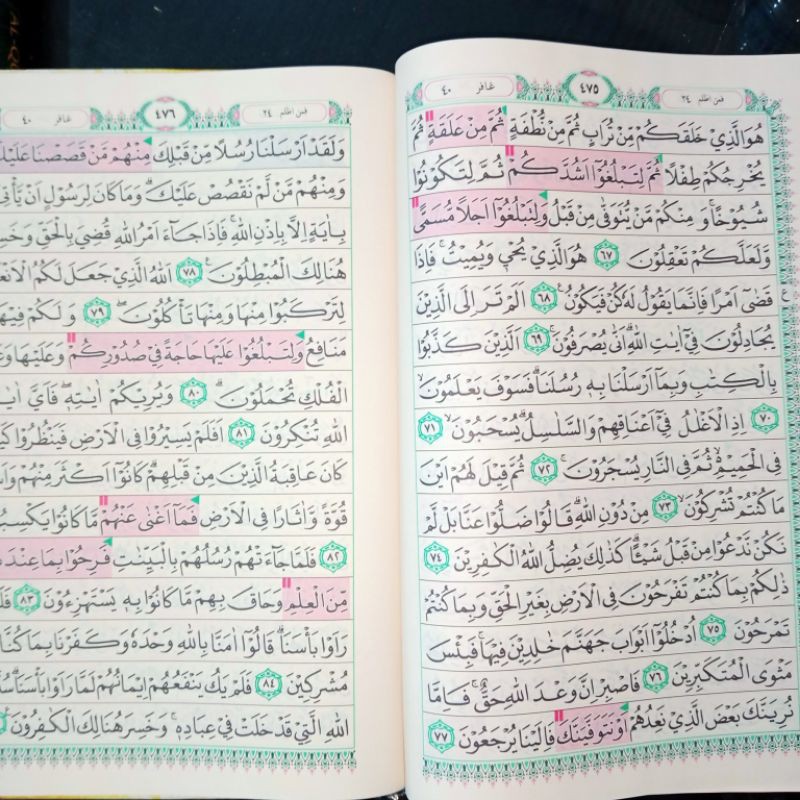 فمن اظلم ٢٤
٤٧٥
غافر ٤٠
هُوَ الَّذِيْ خَلَقَكُمْ مِّنْ تُرَابٍ ثُمَّ مِنْ نُّطْفَةٍ ثُمَّ مِنْ عَلَقَةٍ ثُمَّ
يُخْرِجُكُمْ طِفْلًا ثُمَّ لِتَبْلُغُوْٓا اَشُدَّكُمْ ثُمَّ لِتَكُوْنُوْا
شُيُوْخًاۚ وَمِنْكُمْ مَّنْ يُّتَوَفّٰى مِنْ قَبْلُ وَلِتَبْلُغُوْٓا اَجَلًا مُّسَمًّى
وَّلَعَلَّكُمْ تَعْقِلُوْنَ ٦٧ هُوَ الَّذِيْ يُحْيٖ وَيُمِيْتُۚ فَاِذَا
قَضٰىٓ اَمْرًا فَاِنَّمَا يَقُوْلُ لَهٗ كُنْ فَيَكُوْنُ ٦٨ اَلَمْ تَرَ اِلَى الَّذِيْنَ
يُجَادِلُوْنَ فِيْٓ اٰيٰتِ اللّٰهِۗ اَنّٰى يُصْرَفُوْنَۚ ٦٩ اَلَّذِيْنَ كَذَّبُوْا
بِالْكِتٰبِ وَبِمَآ اَرْسَلْنَا بِهٖ رُسُلَنَاۗ فَسَوْفَ يَعْلَمُوْنَۙ
٧٠ اِذِ الْاَغْلٰلُ فِيْٓ اَعْنَاقِهِمْ وَالسَّلٰسِلُۗ يُسْحَبُوْنَۙ ٧١
فِى الْحَمِيْمِ ەۙ ثُمَّ فِى النَّارِ يُسْجَرُوْنَۚ ٧٢ ثُمَّ قِيْلَ لَهُمْ اَيْنَ
مَا كُنْتُمْ تُشْرِكُوْنَۙ ٧٣ مِنْ دُوْنِ اللّٰهِۗ قَالُوْا ضَلُّوْا عَنَّا بَلْ لَّمْ
نَكُنْ نَّدْعُوْا مِنْ قَبْلُ شَيْـًٔاۗ كَذٰلِكَ يُضِلُّ اللّٰهُ الْكٰفِرِيْنَ ٧٤
ذٰلِكُمْ بِمَا كُنْتُمْ تَفْرَحُوْنَ فِى الْاَرْضِ بِغَيْرِ الْحَقِّ وَبِمَا كُنْتُمْ
تَمْرَحُوْنَ ٧٥ اُدْخُلُوْٓا اَبْوَابَ جَهَنَّمَ خٰلِدِيْنَ فِيْهَاۚ فَبِئْسَ
مَثْوَى الْمُتَكَبِّرِيْنَ ٧٦ فَاصْبِرْ اِنَّ وَعْدَ اللّٰهِ حَقٌّۚ فَاِمَّا
نُرِيَنَّكَ بَعْضَ الَّذِيْ نَعِدُهُمْ اَوْ نَتَوَفَّيَنَّكَ فَاِلَيْنَا يُرْجَعُوْنَ ٧٧
فمن اظلم ٢٤
٤٧٦
غافر ٤٠
وَلَقَدْ اَرْسَلْنَا رُسُلًا مِّنْ قَبْلِكَ مِنْهُمْ مَّنْ قَصَصْنَا عَلَيْكَ
وَمِنْهُمْ مَّنْ لَّمْ نَقْصُصْ عَلَيْكَۗ وَمَا كَانَ لِرَسُوْلٍ اَنْ يَّأْتِيَ
بِاٰيَةٍ اِلَّا بِاِذْنِ اللّٰهِۚ فَاِذَا جَاۤءَ اَمْرُ اللّٰهِ قُضِيَ بِالْحَقِّ وَخَسِرَ
هُنَالِكَ الْمُبْطِلُوْنَ ٧٨ اَللّٰهُ الَّذِيْ جَعَلَ لَكُمُ الْاَنْعَامَ
لِتَرْكَبُوْا مِنْهَا وَمِنْهَا تَأْكُلُوْنَۖ ٧٩ وَلَكُمْ فِيْهَا
مَنَافِعُ وَلِتَبْلُغُوْا عَلَيْهَا حَاجَةً فِيْ صُدُوْرِكُمْ وَعَلَيْهَا وَعَلَى
الْفُلْكِ تُحْمَلُوْنَۗ ٨٠ وَيُرِيْكُمْ اٰيٰتِهٖۖ فَاَيَّ اٰيٰتِ
اللّٰهِ تُنْكِرُوْنَ ٨١ اَفَلَمْ يَسِيْرُوْا فِى الْاَرْضِ فَيَنْظُرُوْا كَيْفَ
كَانَ عَاقِبَةُ الَّذِيْنَ مِنْ قَبْلِهِمْۗ كَانُوْٓا اَكْثَرَ مِنْهُمْ وَاَشَدَّ
قُوَّةً وَّاٰثَارًا فِى الْاَرْضِ فَمَآ اَغْنٰى عَنْهُمْ مَّا كَانُوْا يَكْسِبُوْنَ
٨٢ فَلَمَّا جَاۤءَتْهُمْ رُسُلُهُمْ بِالْبَيِّنٰتِ فَرِحُوْا بِمَا عِنْدَهُمْ
مِّنَ الْعِلْمِ وَحَاقَ بِهِمْ مَّا كَانُوْا بِهٖ يَسْتَهْزِءُوْنَ ٨٣ فَلَمَّا
رَاَوْا بَأْسَنَاۗ قَالُوْٓا اٰمَنَّا بِاللّٰهِ وَحْدَهٗ وَكَفَرْنَا بِمَا كُنَّا
مُشْرِكِيْنَ ٨٤ فَلَمْ يَكُ يَنْفَعُهُمْ اِيْمَانُهُمْ لَمَّا رَاَوْا بَأْسَنَاۗ
اللّٰهِ الَّتِيْ قَدْ خَلَتْ فِيْ عِبَادِهٖۚ وَخَسِرَ هُنَالِكَ الْكٰفِرُوْنَ